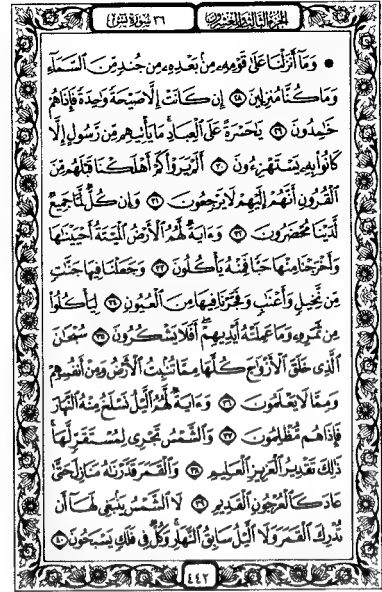 الجزء الثالث والعشرون
٣٦ سورة يس
۞ وَمَآ أَنزَلْنَا عَلَىٰ قَوْمِهِۦ مِنۢ بَعْدِهِۦ مِن جُندٍ مِّنَ ٱلسَّمَآءِ
وَمَا كُنَّا مُنزِلِينَ ٢٨ إِن كَانَتْ إِلَّا صَيْحَةً وَٰحِدَةً فَإِذَا هُمْ
خَٰمِدُونَ ٢٩ يَٰحَسْرَةً عَلَى ٱلْعِبَادِ مَا يَأْتِيهِم مِّن رَّسُولٍ إِلَّا
كَانُوا۟ بِهِۦ يَسْتَهْزِءُونَ ٣٠ أَلَمْ يَرَوْا۟ كَمْ أَهْلَكْنَا قَبْلَهُم مِّنَ
ٱلْقُرُونِ أَنَّهُمْ إِلَيْهِمْ لَا يَرْجِعُونَ ٣١ وَإِن كُلٌّ لَّمَّا جَمِيعٌ
لَّدَيْنَا مُحْضَرُونَ ٣٢ وَءَايَةٌ لَّهُمُ ٱلْأَرْضُ ٱلْمَيْتَةُ أَحْيَيْنَٰهَا
وَأَخْرَجْنَا مِنْهَا حَبًّا فَمِنْهُ يَأْكُلُونَ ٣٣ وَجَعَلْنَا فِيهَا جَنَّٰتٍ
مِّن نَّخِيلٍ وَأَعْنَٰبٍ وَفَجَّرْنَا فِيهَا مِنَ ٱلْعُيُونِ ٣٤ لِيَأْكُلُوا۟
مِن ثَمَرِهِۦ وَمَا عَمِلَتْهُ أَيْدِيهِمْ أَفَلَا يَشْكُرُونَ ٣٥ سُبْحَٰنَ
ٱلَّذِى خَلَقَ ٱلْأَزْوَٰجَ كُلَّهَا مِمَّا تُنۢبِتُ ٱلْأَرْضُ وَمِنْ أَنفُسِهِمْ
وَمِمَّا لَا يَعْلَمُونَ ٣٦ وَءَايَةٌ لَّهُمُ ٱلَّيْلُ نَسْلَخُ مِنْهُ ٱلنَّهَارَ
فَإِذَا هُم مُّظْلِمُونَ ٣٧ وَٱلشَّمْسُ تَجْرِى لِمُسْتَقَرٍّ لَّهَا
ذَٰلِكَ تَقْدِيرُ ٱلْعَزِيزِ ٱلْعَلِيمِ ٣٨ وَٱلْقَمَرَ قَدَّرْنَٰهُ مَنَازِلَ حَتَّىٰ
عَادَ كَٱلْعُرْجُونِ ٱلْقَدِيمِ ٣٩ لَا ٱلشَّمْسُ يَنۢبَغِى لَهَآ أَن
تُدْرِكَ ٱلْقَمَرَ وَلَا ٱلَّيْلُ سَابِقُ ٱلنَّهَارِ وَكُلٌّ فِى فَلَكٍ يَسْبَحُونَ ٤٠
٤٤٢